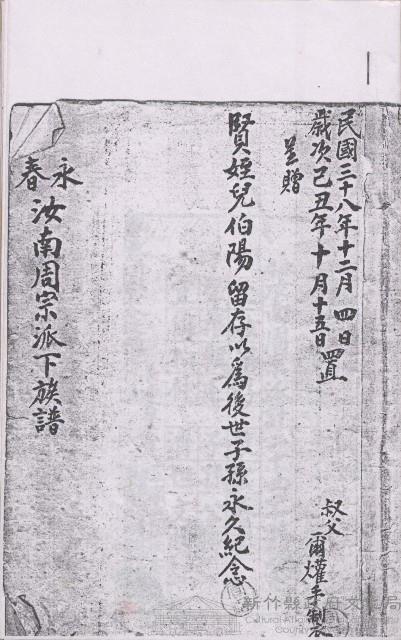 民國三十八年十二月四日
歲次己丑年十月十五日置
呈贈
叔父爾爟手製
賢姪兒伯陽留存以為後世子孫永久紀念
永春
汝南周宗派下族譜
新竹縣政府文化局